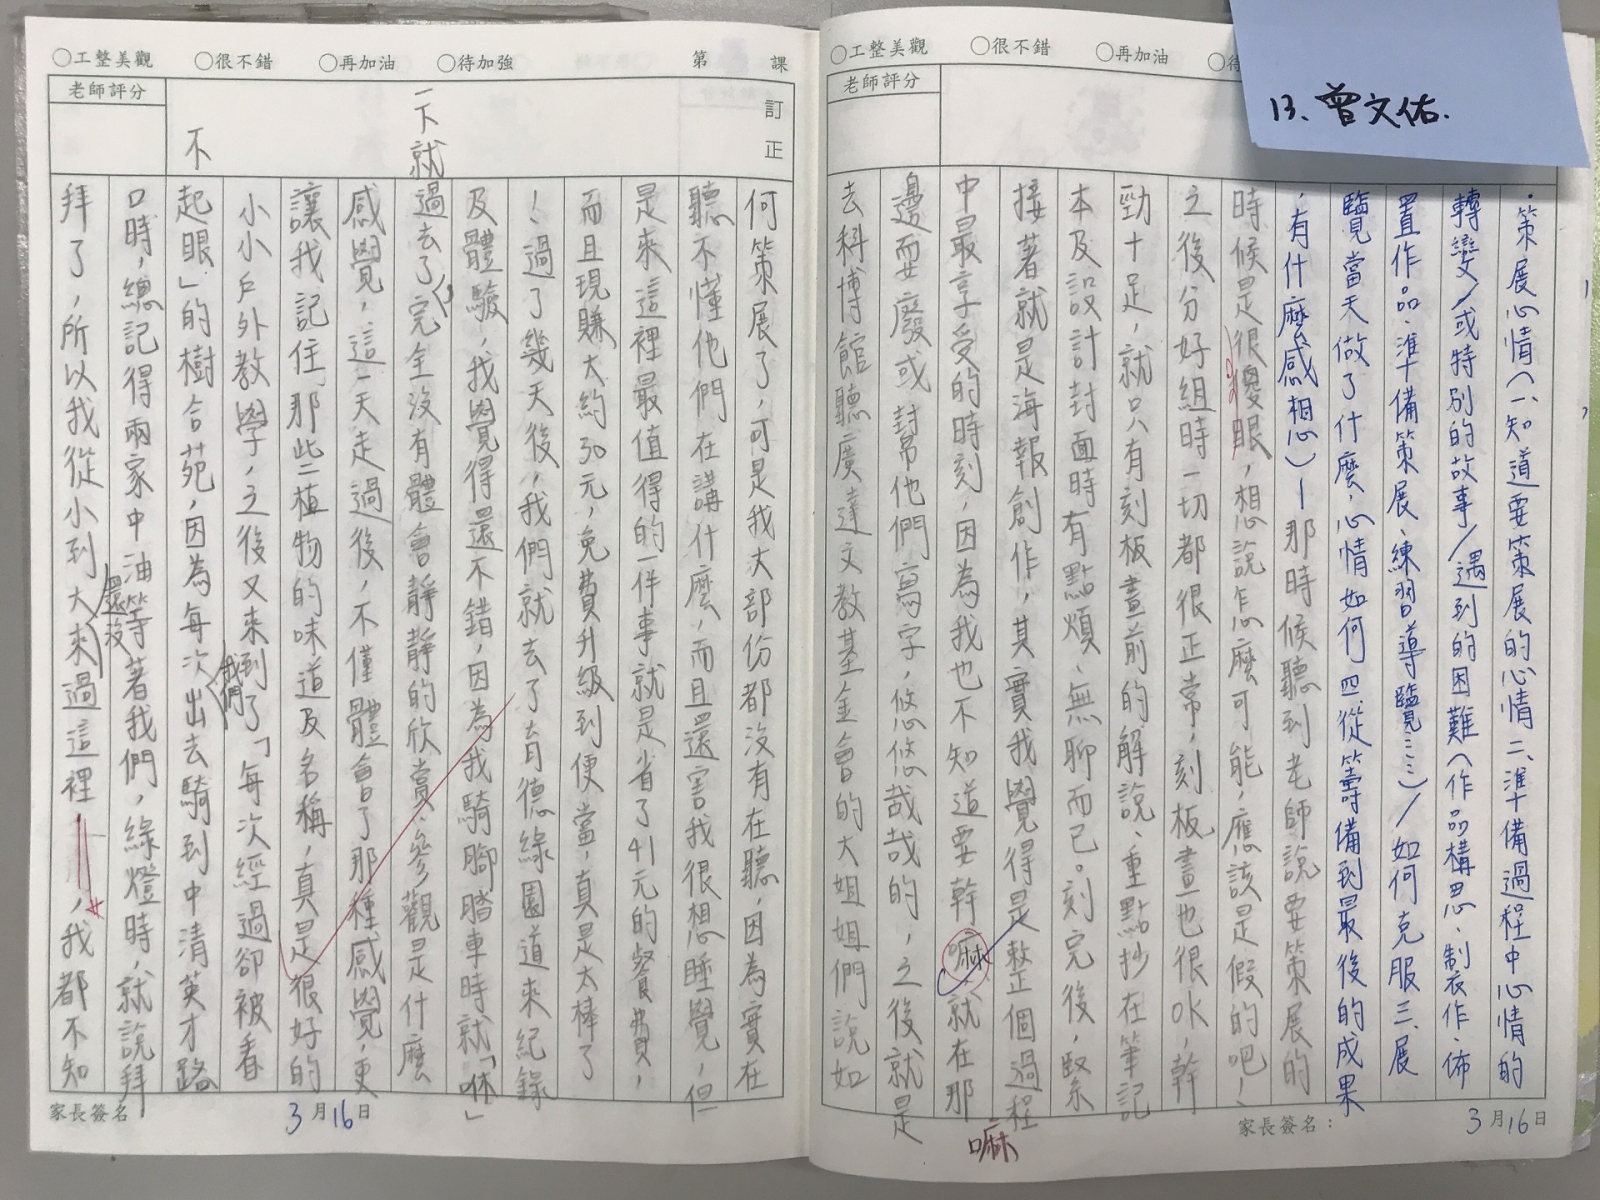 ○工整美觀 ○很不錯 ○再加油
老師評分
13、曾文佑.
·策展心情(一、知道要策展的心情二、準備過程中心情的
轉變/或特別的故事/遇到的困難(作品構思、製作、佈
置作品、準備策展、練習導覽……)/如何克服三、展
覽當天做了什麼,心情如何四、從籌備到最後的成果
,有什麼感想)—那時候聽到老師說要策展的
時候是很傻眼,想說怎麼可能,應該是假的吧!
之後分好組時一切都很正常,刻板畫也很OK,幹
勁十足,就只有刻板畫前的解說、重點抄在筆記
本及設計封面時有點煩、無聊而已。刻完後,緊
接著就是海報創作,其實我覺得是整個過程
中最享受的時刻,因為我也不知道要幹嘛就在那
嘛
邊耍廢或幫他們寫字,悠悠哉哉的,之後就是
去科博館聽廣達文教基金會的大姐姐們說如
家長簽名: 3月16日
○工整美觀 ○很不錯 ○再加油 ○待加強 第 課
老師評分
訂正
一下就
不
何策展了,可是我大部份都沒有在聽,因為實在
聽不懂他們在講什麼,而且還害我很想睡覺,但
是來這裡最值得的一件事就是省了41元的餐費,
而且現賺大約30元,免費升級到便當,真是太棒了
!過了幾天後,我們就去了育德綠園道來紀錄
及體驗,我覺得還不錯,因為我騎腳踏車時就「咻」
過去了,完全沒有體會靜靜的欣賞、參觀是什麼
感覺,這一天走過後,不僅體會了那種感覺,更
讓我記住那些植物的味道及名稱,真是很好的
小小戶外教學,之後又來到了「每次經過卻被看
我們
起眼」的樹合苑,因為每次出去騎到中清英才路
口時,總記得兩家中油等著我們,綠燈時,就說拜
還沒
拜了,所以我從小到大來過這裡,我都不知
家長簽名 3月16日